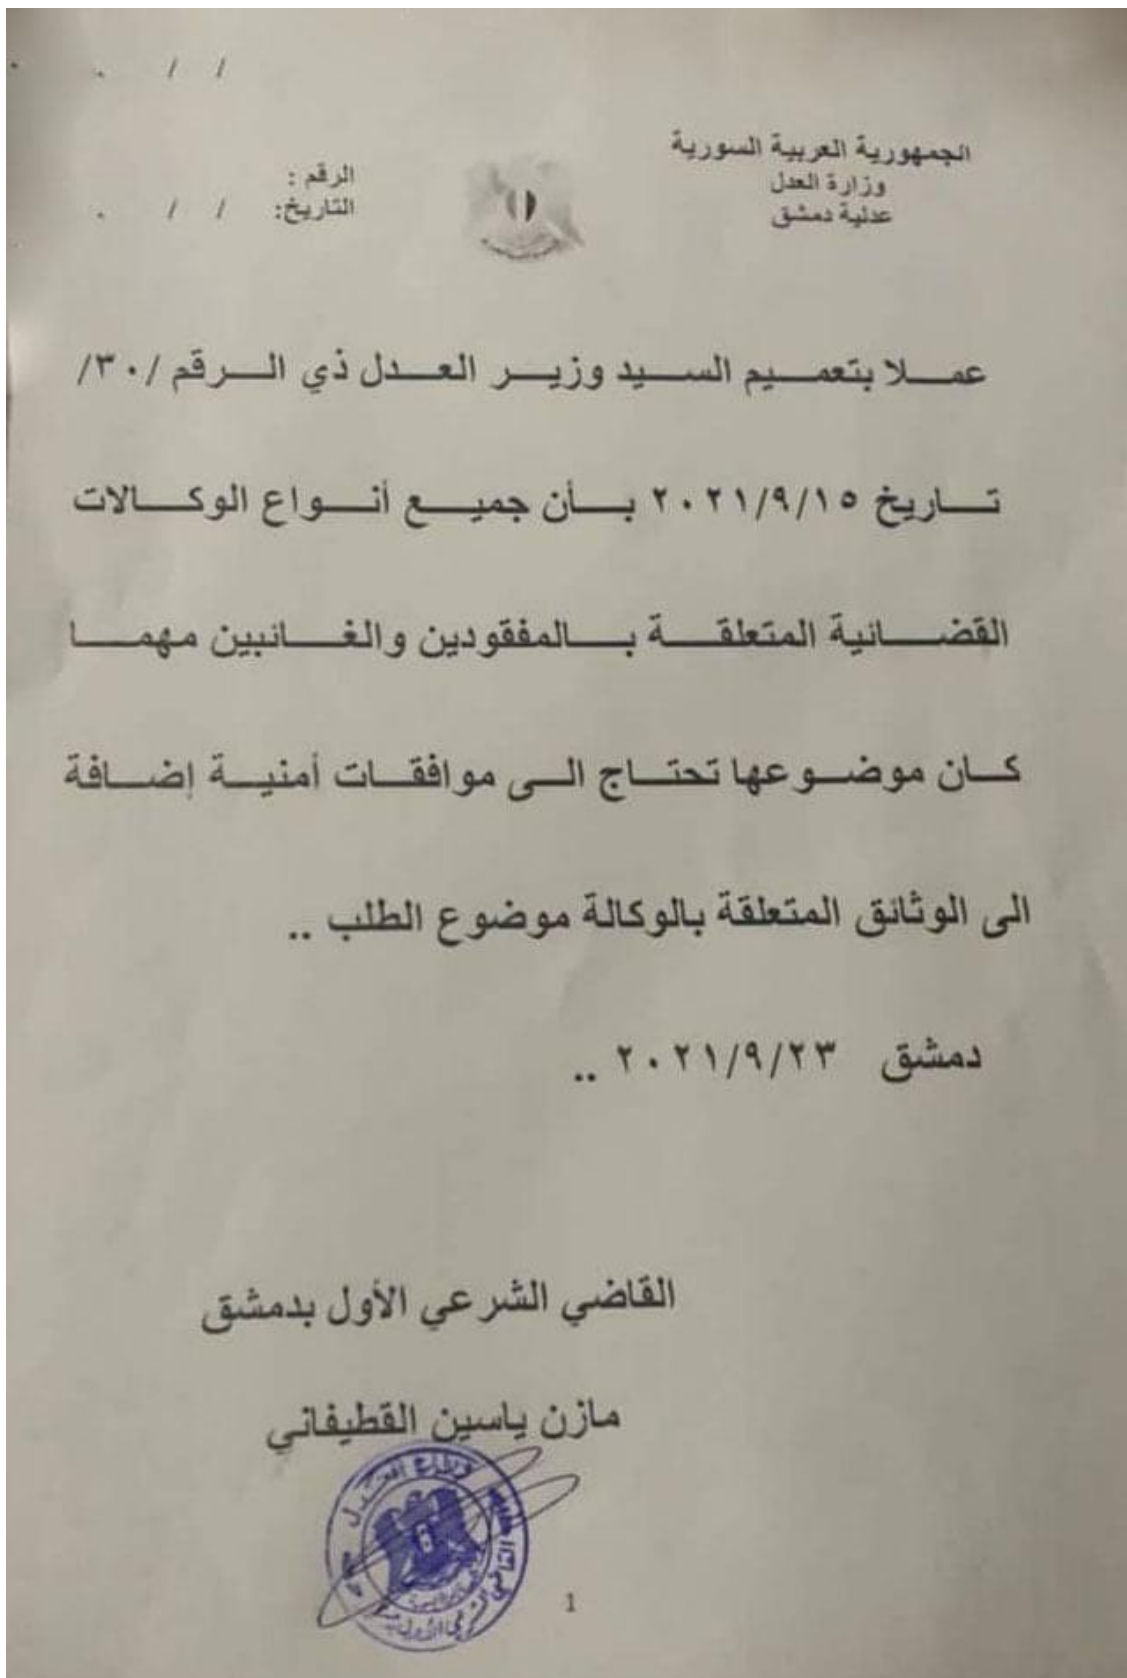 / / .
الجمهورية العربية السورية
وزارة العدل
عدلية دمشق
الرقم :
التاريخ: / / .
عملا بتعميم السيد وزير العدل ذي الرقم /٣٠/
تاريخ ٢٠٢١/٩/١٥ بأن جميع أنواع الوكالات
القضائية المتعلقة بالمفقودين والغائبين مهما
كان موضوعها تحتاج الى موافقات أمنية إضافة
الى الوثائق المتعلقة بالوكالة موضوع الطلب ..
دمشق ٢٠٢١/٩/٢٣ ..
القاضي الشرعي الأول بدمشق
مازن ياسين القطيفاني
وزارة العدل
القاضي الشرعي الأول
1